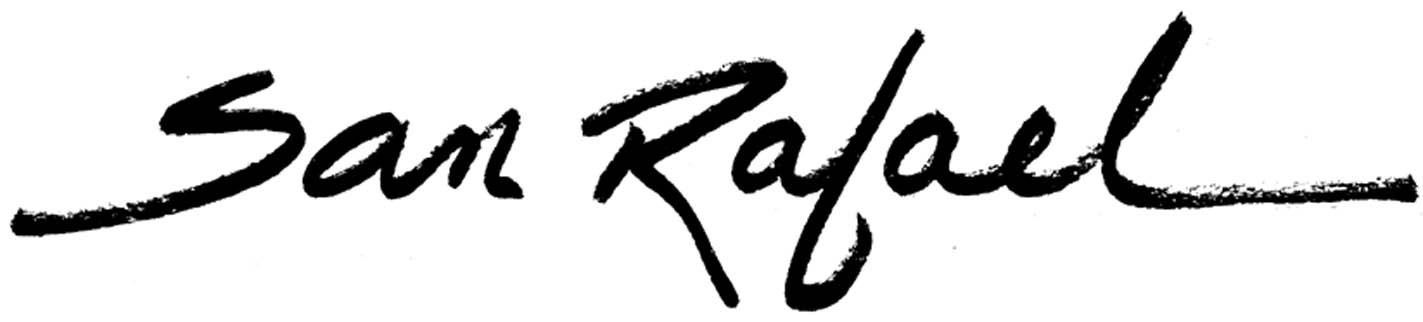 San Rafael